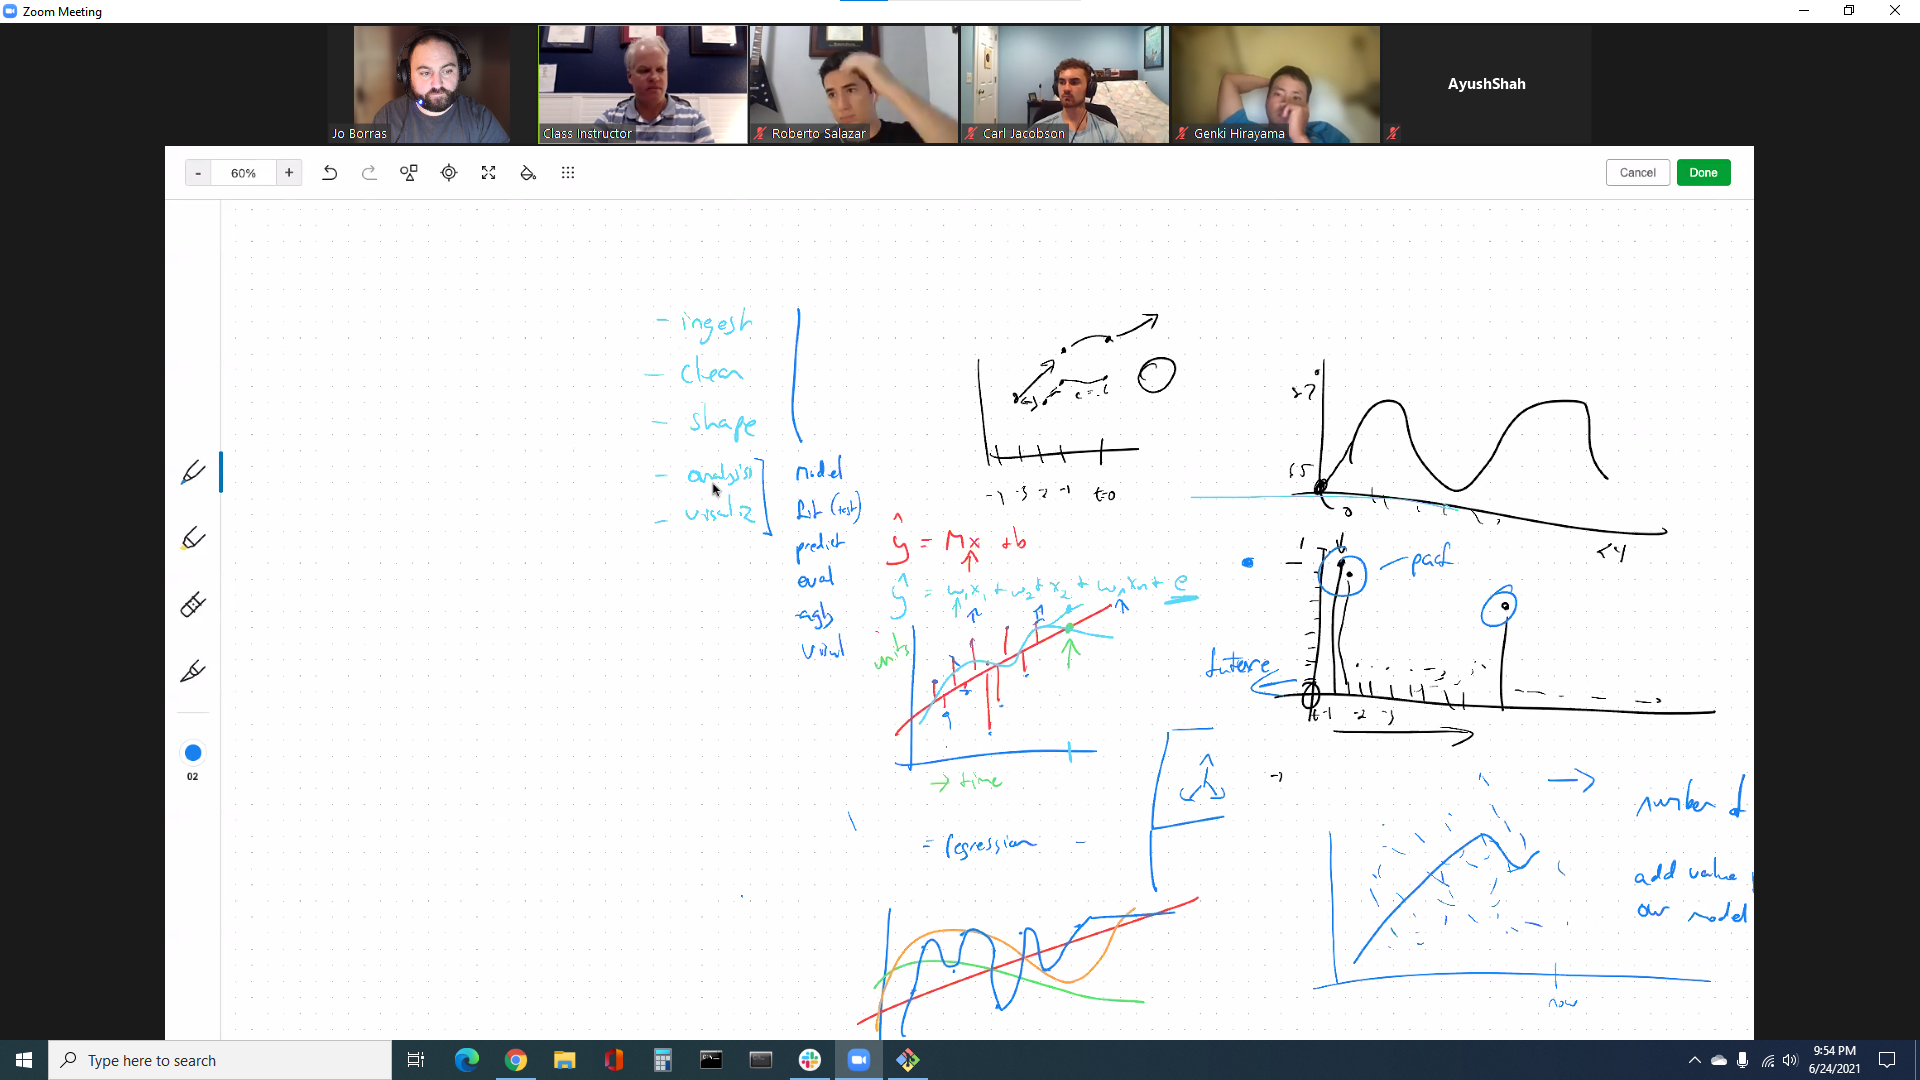 Zoom Meeting
Jo Borras
Class Instructor
Roberto Salazar
Carl Jacobson
Genki Hirayama
AyushShah
- 60% +
Cancel
Done
- ingest
- clean
- shape
- analysis
- visualiz
model
fit (test)
predict
eval
agg
visual
ŷ = Mx + b
ŷ = w₁x₁ + w₂ + x₂ + wₙxn + e
units
→ time
= regression -
-3 -2 -1 t=0
0
<4
1
- past
future
t-1 -2 -3
number of
add value
our model
now
02
Type here to search
9:54 PM
6/24/2021